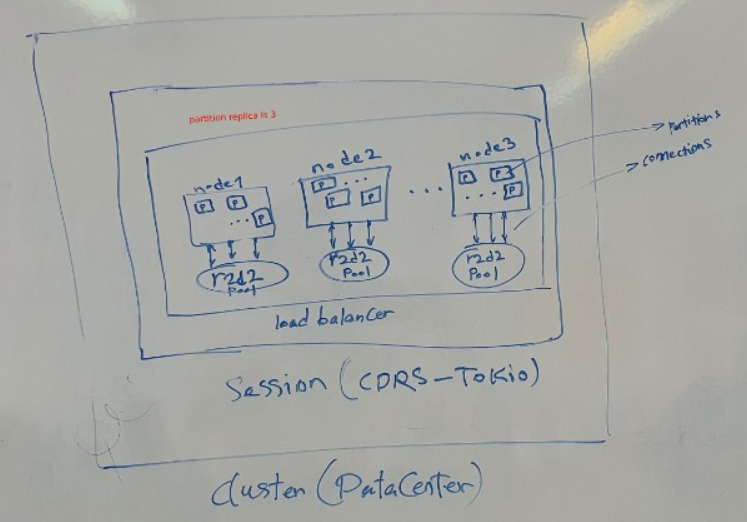 partition replica is 3
node1
node2
node3
P P ... P
P ... P P
P P ... P
...
r2d2
Pool
r2d2
Pool
r2d2
Pool
partitions
connections
load balancer
Session (CDRS-Tokio)
cluster (DataCenter)